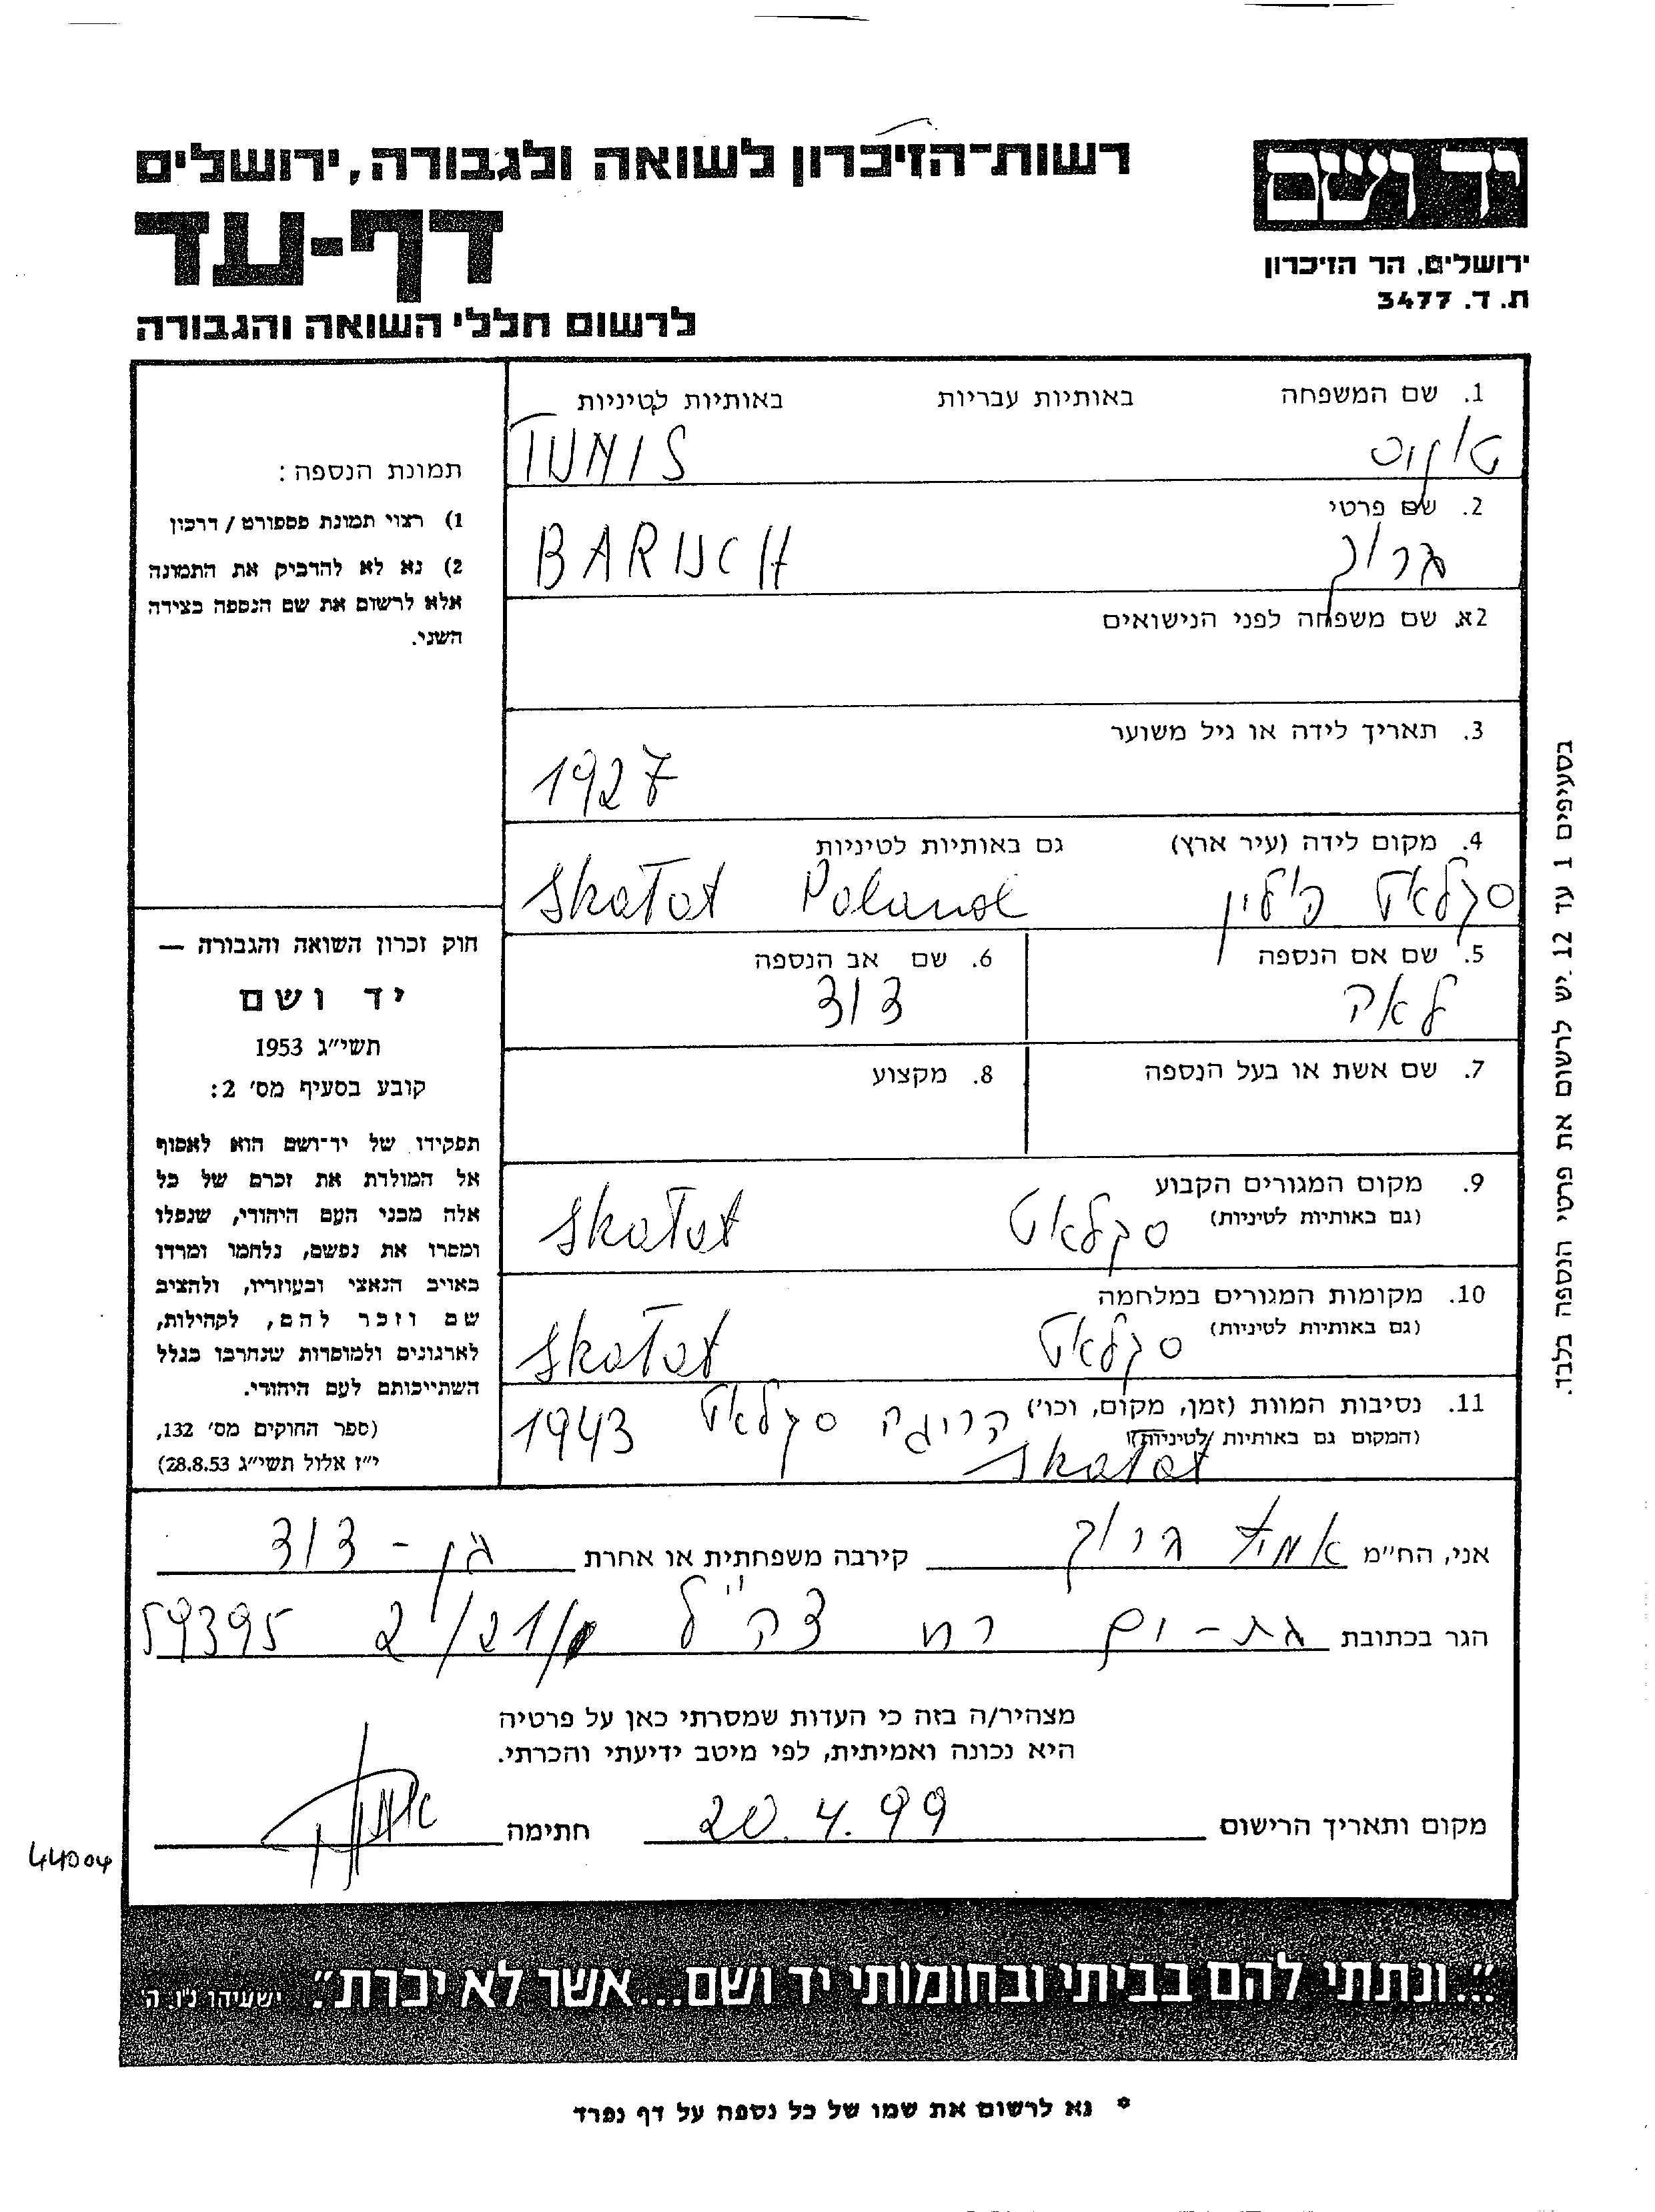 רשות־הזיכרון לשואה ולגבורה, ירושלים
יד ושם
דף-עד
ירושלים, הר הזיכרון
ת. ד. 3477
לרשום חללי השואה והגבורה
1. שם המשפחה באותיות עבריות באותיות לטיניות
TUNIS
2. שם פרטי
ברוך BARUCH
2א. שם משפחה לפני הנישואים
3. תאריך לידה או גיל משוער
1927
4. מקום לידה (עיר ארץ) גם באותיות לטיניות
סקלאט פולין Skałat Poland
5. שם אם הנספה 6. שם אב הנספה
לאה דוד
7. שם אשת או בעל הנספה 8. מקצוע
9. מקום המגורים הקבוע
(גם באותיות לטיניות) סקלאט Skałat
10. מקומות המגורים במלחמה
(גם באותיות לטיניות) סקלאט Skałat
11. נסיבות המוות (זמן, מקום, וכו') סקלאט 1943
(המקום גם באותיות לטיניות)
Skałat
תמונת הנספה:
1) רצוי תמונת פספורט/דרכון
2) נא לא להדביק את התמונה
אלא לרשום את שם הנספה בצידה
השני.
חוק זכרון השואה והגבורה —
יד ושם
תשי״ג 1953
קובע בסעיף מס׳ 2:
תפקידו של יד־ושם הוא לאסוף
אל המולדת את זכרם של כל
אלה מבני העם היהודי, שנפלו
ומסרו את נפשם, נלחמו ומרדו
באויב הנאצי ובעוזריו, ולהציב
שם וזכר להם, לקהילות,
לארגונים ולמוסדות שנחרבו בגלל
השתייכותם לעם היהודי.
(ספר החוקים מס׳ 132,
י״ז אלול תשי״ג 28.8.53)
בסעיפים 1 עד 12 יש לרשום את פרטי הנספה בלבד.
אני, הח״מ ברוך קירבה משפחתית או אחרת בן - דוד
הגר בכתובת בת-ים רח צה״ל 59395
מצהיר/ה בזה כי העדות שמסרתי כאן על פרטיה
היא נכונה ואמיתית, לפי מיטב ידיעתי והכרתי.
מקום ותאריך הרישום 20.4.99 חתימה
44004
״...ונתתי להם בביתי ובחומותי יד ושם...אשר לא יכרת״. ישעיהו נ״ו, ה׳
* נא לרשום את שמו של כל נספה על דף נפרד